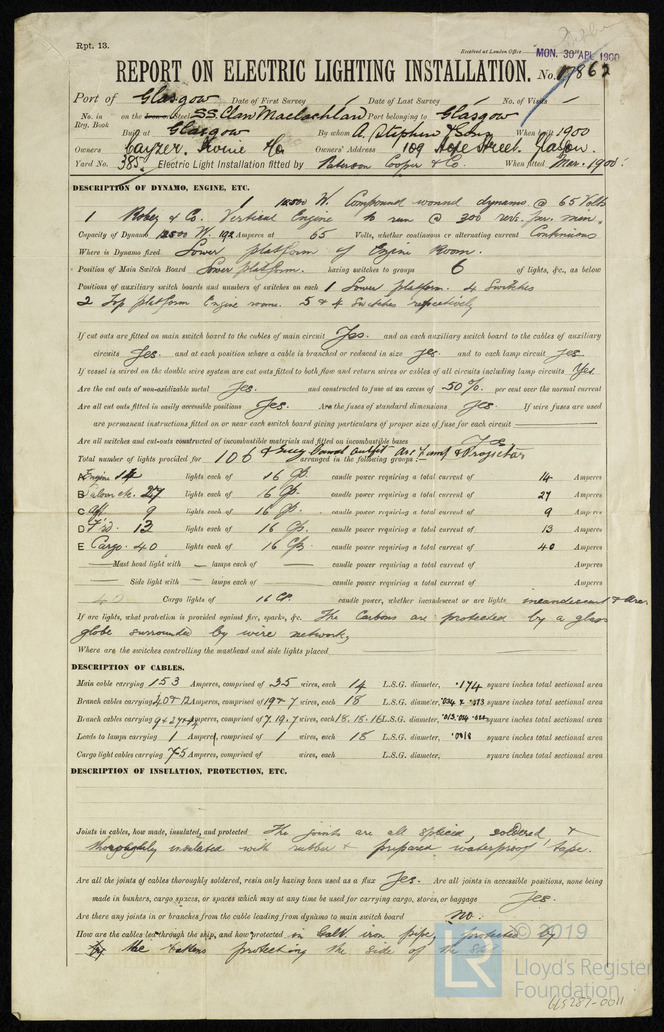 Rpt. 13.
Received at London Office MON. 30 APL 1900
REPORT ON ELECTRIC LIGHTING INSTALLATION. No. 17862
Port of Glasgow Date of First Survey Date of Last Survey No. of Visits
No. in Reg. Book on the Iron or Steel S.S. Clan Maclachlan Port belonging to Glasgow
Built at Glasgow By whom A. Stephen & Sons When built 1900
Owners Cayzer, Irvine & Co. Owners' Address 109 Hope Street, Glasgow
Yard No. 385. Electric Light Installation fitted by Paterson Cooper & Co. When fitted Mar. 1900.
DESCRIPTION OF DYNAMO, ENGINE, ETC.
1 12500 W. Compound wound dynamo @ 65 Volts
1 Robey & Co. Vertical Engine to run @ 300 revs. per min.
Capacity of Dynamo 12500 W. 192 Amperes at 65 Volts, whether continuous or alternating current Continuous
Where is Dynamo fixed Lower platform of Engine Room.
Position of Main Switch Board Lower platform. having switches to groups 6 of lights, &c., as below
Positions of auxiliary switch boards and numbers of switches on each 1 Lower platform. 4 Switches
2 Top platform Engine room. 5 & 4 Switches respectively
If cut outs are fitted on main switch board to the cables of main circuit Yes. and on each auxiliary switch board to the cables of auxiliary
circuits Yes and at each position where a cable is branched or reduced in size yes and to each lamp circuit yes
If vessel is wired on the double wire system are cut outs fitted to both flow and return wires or cables of all circuits including lamp circuits Yes
Are the cut outs of non-oxidizable metal Yes. and constructed to fuse at an excess of 50%. per cent over the normal current
Are all cut outs fitted in easily accessible positions Yes. Are the fuses of standard dimensions Yes. If wire fuses are used
are permanent instructions fitted on or near each switch board giving particulars of proper size of fuse for each circuit
Are all switches and cut-outs constructed of incombustible materials and fitted on incombustible bases Yes
Total number of lights provided for 106 & Suez Canal outfit Arc Lamp & Projector arranged in the following groups :—
A Engine 14 lights each of 16 Cp. candle power requiring a total current of 14 Amperes
B Saloon &c. 27 lights each of 16 Cp. candle power requiring a total current of 27 Amperes
C Aft 9 lights each of 16 Cp. candle power requiring a total current of 9 Amperes
D F'd. 13 lights each of 16 Cp. candle power requiring a total current of 13 Amperes
E Cargo. 40 lights each of 16 Cp. candle power requiring a total current of 40 Amperes
Mast head light with lamps each of candle power requiring a total current of Amperes
Side light with lamps each of candle power requiring a total current of Amperes
40 Cargo lights of 16 CP. candle power, whether incandescent or arc lights incandescent & Arc.
If arc lights, what protection is provided against fire, sparks, &c. The Carbons are protected by a glass
globe surrounded by wire network,
Where are the switches controlling the masthead and side lights placed
DESCRIPTION OF CABLES.
Main cable carrying 153 Amperes, comprised of 35 wires, each 14 L.S.G. diameter, .174 square inches total sectional area
Branch cables carrying 40 & 12 Amperes, comprised of 19 & 7 wires, each 18 L.S.G. diameter, .034 & .013 square inches total sectional area
Branch cables carrying 9 & 27 Amperes, comprised of 7. 19. 7 wires, each 18. 18. 16 L.S.G. diameter, .013 .034 .022 square inches total sectional area
Leads to lamps carrying 1 Amperes, comprised of 1 wires, each 18 L.S.G. diameter, .0018 square inches total sectional area
Cargo light cables carrying 7.5 Amperes, comprised of wires, each L.S.G. diameter, square inches total sectional area
DESCRIPTION OF INSULATION, PROTECTION, ETC.
Joints in cables, how made, insulated, and protected The joints are all spliced, soldered, &
thoroughly insulated with rubber & prepared waterproof tape.
Are all the joints of cables thoroughly soldered, resin only having been used as a flux Yes. Are all joints in accessible positions, none being
made in bunkers, cargo spaces, or spaces which may at any time be used for carrying cargo, stores, or baggage Yes.
Are there any joints in or branches from the cable leading from dynamo to main switch board No.
How are the cables led through the ship, and how protected in Galvd iron pipe, protected by
the battens protecting the side of the ship
© 2019
LR
Lloyd's Register
Foundation
LLS287-0011